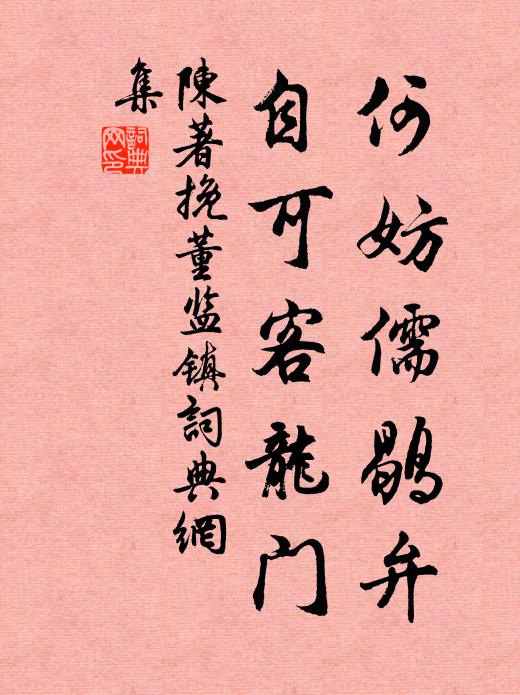 何妨儒鶡弁
自可客龍门
陳著挽董监镇詞典網
集
詞典网印